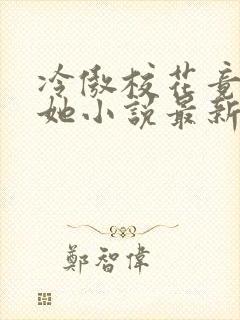 冷傲校花竟
她小說最新
鄭智偉